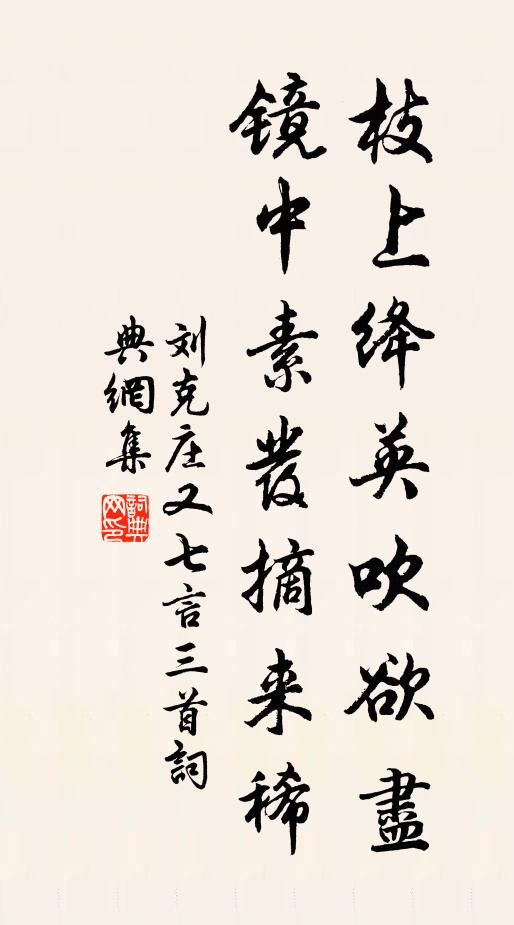 枝上絳英吹欲盡
镜中素發摘来稀
刘克庄又七言三首詞
典網集
詞典网印